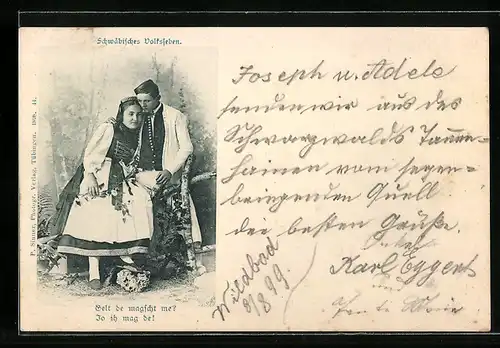 Schwäbisches Volksleben.
Joseph u. Adele
senden wir aus des
Schwarzwalds Tannen-
hainen vom segen-
bringenden Quell
die besten Grüße.
Karl Eggert
Wildbad
9/8 99.
Gelt de magscht me?
Jo ih mag de!
P. Sinner, Photogr. Verlag, Tübingen. 1898. 44.